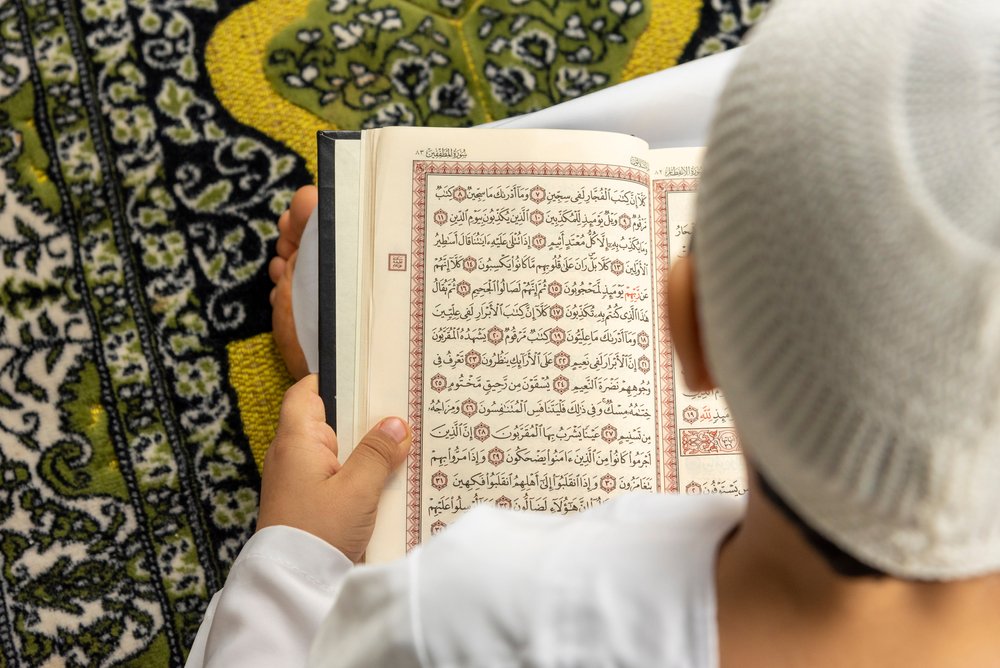 سُورَةُ الانفِطَار ٨٢
سُورَةُ المُطَفِّفِينَ ٨٣
كَلَّآ إِنَّ كِتَٰبَ ٱلْفُجَّارِ لَفِى سِجِّينٍ ٧ وَمَآ أَدْرَىٰكَ مَا سِجِّينٌ ٨ كِتَٰبٌ
مَّرْقُومٌ ٩ وَيْلٌ يَوْمَئِذٍ لِّلْمُكَذِّبِينَ ١٠ ٱلَّذِينَ يُكَذِّبُونَ بِيَوْمِ ٱلدِّينِ ١١
وَمَا يُكَذِّبُ بِهِۦٓ إِلَّا كُلُّ مُعْتَدٍ أَثِيمٍ ١٢ إِذَا تُتْلَىٰ عَلَيْهِ ءَايَٰتُنَا قَالَ أَسَٰطِيرُ
ٱلْأَوَّلِينَ ١٣ كَلَّا بَلْ رَانَ عَلَىٰ قُلُوبِهِم مَّا كَانُوا۟ يَكْسِبُونَ ١٤ كَلَّآ إِنَّهُمْ
عَن رَّبِّهِمْ يَوْمَئِذٍ لَّمَحْجُوبُونَ ١٥ ثُمَّ إِنَّهُمْ لَصَالُوا۟ ٱلْجَحِيمِ ١٦ ثُمَّ يُقَالُ
هَٰذَا ٱلَّذِى كُنتُم بِهِۦ تُكَذِّبُونَ ١٧ كَلَّآ إِنَّ كِتَٰبَ ٱلْأَبْرَارِ لَفِى عِلِّيِّينَ
١٨ وَمَآ أَدْرَىٰكَ مَا عِلِّيُّونَ ١٩ كِتَٰبٌ مَّرْقُومٌ ٢٠ يَشْهَدُهُ ٱلْمُقَرَّبُونَ
٢١ إِنَّ ٱلْأَبْرَارَ لَفِى نَعِيمٍ ٢٢ عَلَى ٱلْأَرَآئِكِ يَنظُرُونَ ٢٣ تَعْرِفُ فِى
وُجُوهِهِمْ نَضْرَةَ ٱلنَّعِيمِ ٢٤ يُسْقَوْنَ مِن رَّحِيقٍ مَّخْتُومٍ ٢٥
خِتَٰمُهُۥ مِسْكٌ وَفِى ذَٰلِكَ فَلْيَتَنَافَسِ ٱلْمُتَنَٰفِسُونَ ٢٦ وَمِزَاجُهُۥ
مِن تَسْنِيمٍ ٢٧ عَيْنًا يَشْرَبُ بِهَا ٱلْمُقَرَّبُونَ ٢٨ إِنَّ ٱلَّذِينَ
أَجْرَمُوا۟ كَانُوا۟ مِنَ ٱلَّذِينَ ءَامَنُوا۟ يَضْحَكُونَ ٢٩ وَإِذَا مَرُّوا۟ بِهِمْ
يَتَغَامَزُونَ ٣٠ وَإِذَا ٱنقَلَبُوٓا۟ إِلَىٰٓ أَهْلِهِمُ ٱنقَلَبُوا۟ فَكِهِينَ ٣١
إِنَّ هَٰٓؤُلَآءِ لَضَآلُّونَ ٣٢ أُرْسِلُوا۟ عَلَيْهِمْ